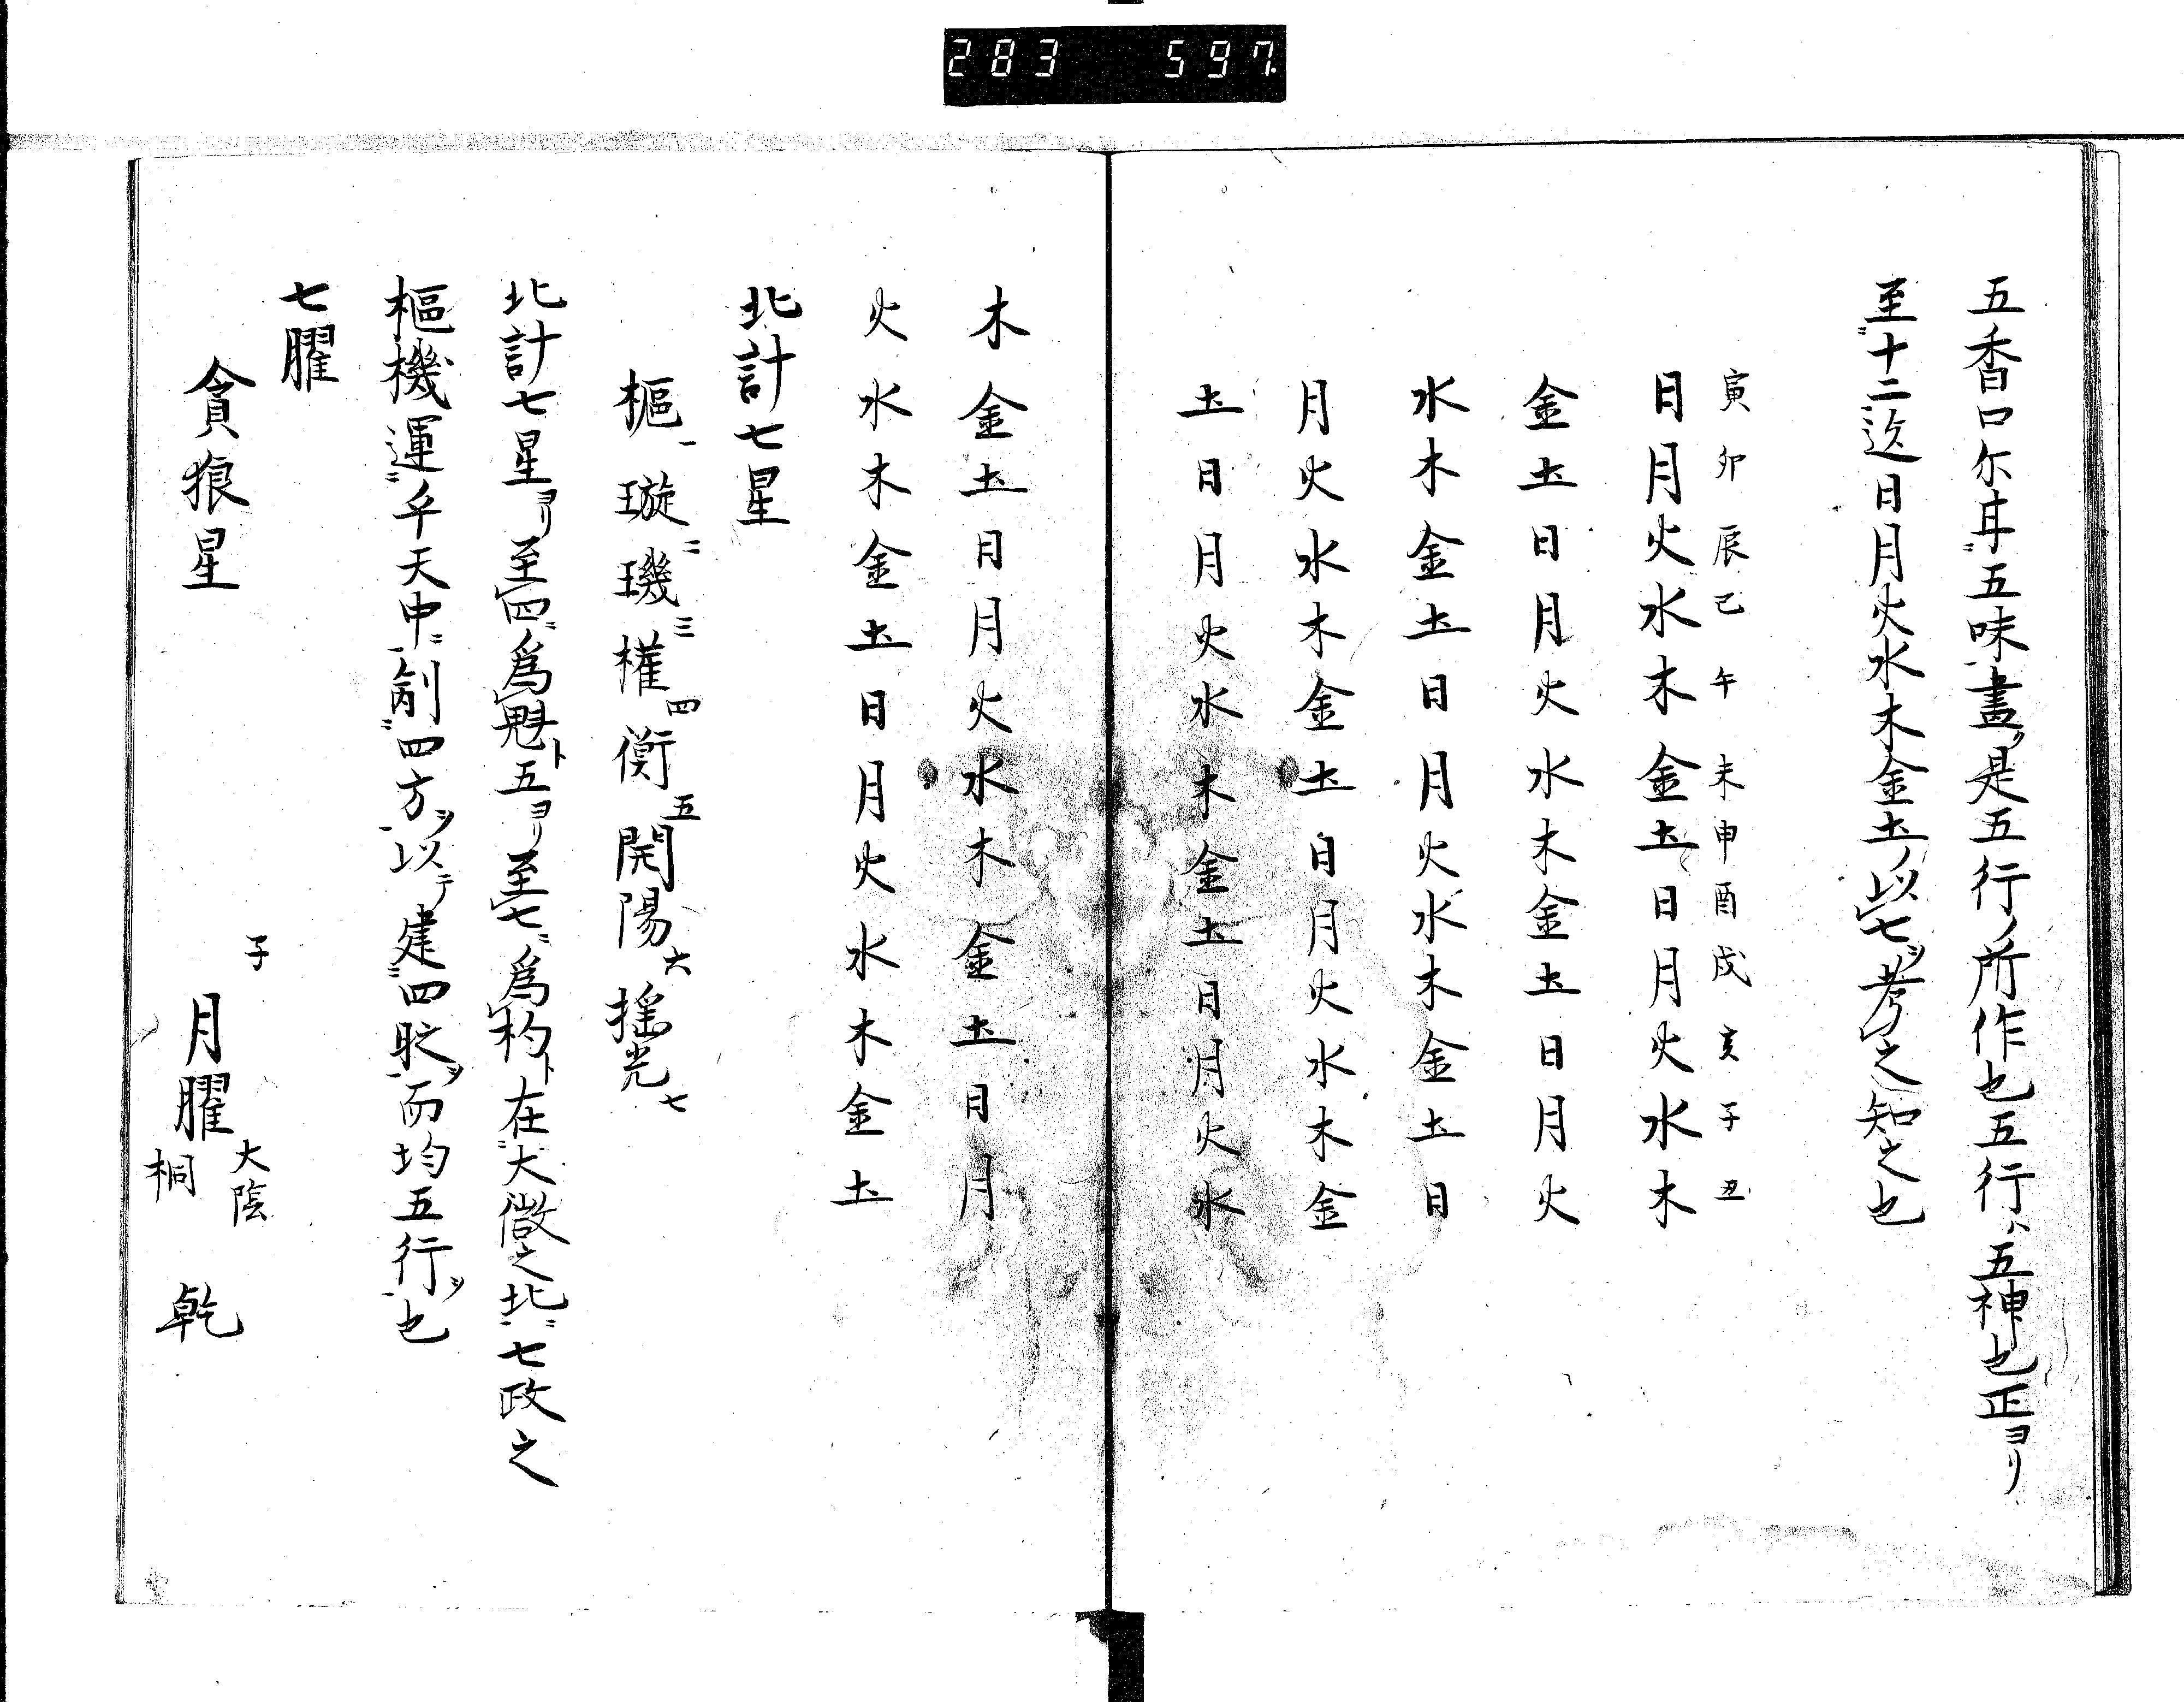 283 597.
五香口尓耳ニ五味畫ク是五行ノ所作也五行ハ五神也正ヨリ
至ニ十二迄日月火水木金土ノ以七ヲ考之知之也
寅卯辰己午未申酉戌亥子丑
日月火水木金土日月火水木
金土日月火水木金土日月火
水木金土日月火水木金土日
月火水木金土日月火水木金
土日月火水木金土日月火水
木金土日月火水木金土日月
火水木金土日月火水木金土
北計七星
樞一璇二璣三権四衡五開陽六揺光七
北計七星ヨリ至四ニ為魁ト五ヨリ至七ニ為杓ト在大微之北ニ七政之
樞機運乎天中ニ制四方ヲ以テ建四時ヲ而均五行ヲ也
七曜
貪狼星 子 月曜 大陰 桐 乾